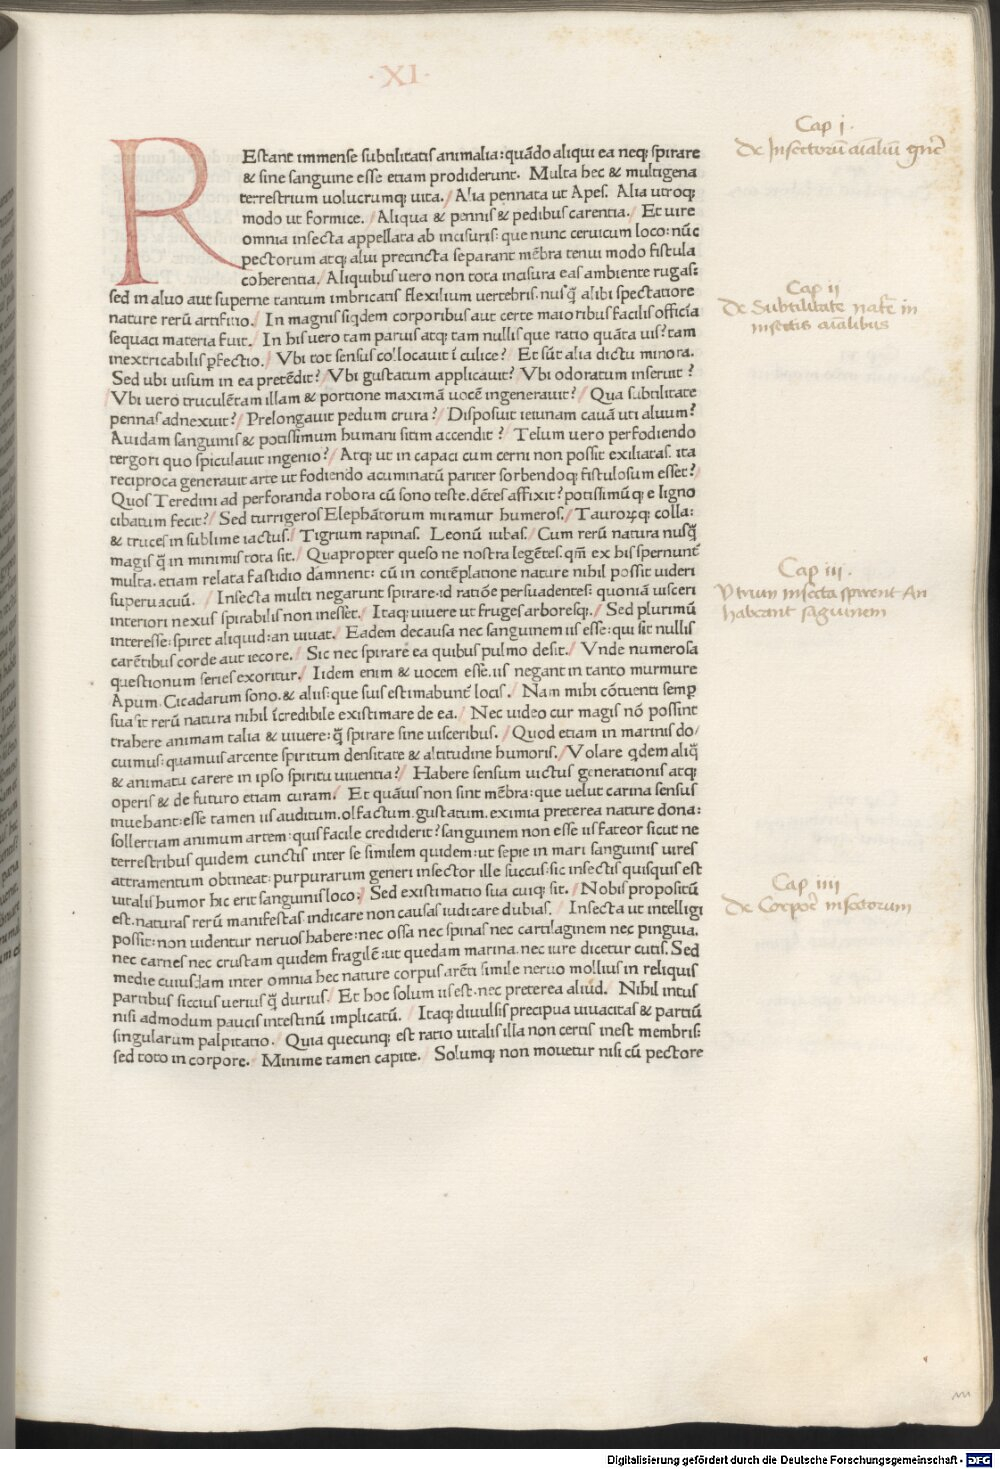 ·XI·
REstant immense subtilitatis animalia: quādo aliqui ea neq; spirare
& sine sanguine esse etiam prodiderunt. Multa hec & multigena
terrestrium uolucrumq; uita. Alia pennata ut Apes. Alia utroq;
modo ut formice. Aliqua & pennis & pedibus carentia. Et uire
omnia insecta appellata ab incisuris: que nunc ceruicum loco: nūc
pectorum atq; alui precincta separant mēbra tenui modo fistula
coherentia. Aliquibus uero non tota incisura eas ambiente rugas:
sed in aluo aut superne tantum imbricatis flexilium uertebris. nusq̄ alibi spectatiore
nature rerū artifitio. In magnis siqdem corporibus aut certe maioribus facilis officīa
sequaci materia fuit. In his uero tam paruis atq; tam nullis que ratio quāta uis? tam
inextricabilis ꝑfectio. Vbi tot sensus collocauit ī culice? Et sūt alia dictu minora.
Sed ubi uisum in ea pretēdit? Vbi gustatum applicauit? Vbi odoratum inseruit ?
Vbi uero truculētam illam & portione maximā uocē ingenerauit? Qua subtilitate
pennas adnexuit? Prelongauit pedum crura? Disposuit ieiunam cauā uti aluum?
Auidam sanguinis & potissimum humani sitim accendit ? Telum uero perfodiendo
tergori quo spiculauit ingenio? Atq; ut in capaci cum cerni non possit exiliatas. ita
reciproca generauit arte ut fodiendo acuminatū pariter sorbendoq; fistulosum esset?
Quos Teredini ad perforanda robora cū sono teste. dētes affixit? potissimūq; e ligno
cibatum fecit? Sed turrigeros Elephātorum miramur humeros. Tauroꝝq; colla:
& truces in sublime iactus. Tigrium rapinas. Leonū iubas. Cum rerū natura nusq̄
magis q̄ in minimis tota sit. Quapropter queso ne nostra legētes. qm̄ ex his spernunt
multa. etiam relata fastidio damnent: cū in contēplatione nature nihil possit uideri
superuacuū. Insecta multi negarunt spirare. id ratiōe persuadentes: quoniā uisceri
interiori nexus spirabilis non inesset. Itaq; uiuere ut fruges arboresq;. Sed plurimū
interesse: spiret aliquid: an uiuat. Eadem decausa nec sanguinem iis esse: qui sit nullis
carētibus corde aut iecore. Sic nec spirare ea quibus pulmo desit. Vnde numerosa
questionum series exoritur. Iidem enim & uocem esse. iis negant in tanto murmure
Apum. Cicadarum sono. & aliis: que suis estimabunt locis. Nam mihi cōtuenti semꝑ
suasit rerū natura nihil īcredibile existimare de ea. Nec uideo cur magis nō possint
trahere animam talia & uiuere: q̄ spirare sine uisceribus. Quod etiam in marinis do/
cuimus: quamuis arcente spiritum densitate & altitudine humoris. Volare qdem aliq̄
& animatu carere in ipso spiritu uiuentia? Habere sensum uictus generationis atq;
operis & de futuro etiam curam. Et quāuis non sint mēbra: que uelut carina sensus
inuehant: esse tamen iis auditum. olfactum. gustatum. eximia preterea nature dona:
sollertiam animum artem: quis facile crediderit? sanguinem non esse iis fateor sicut ne
terrestribus quidem cunctis inter se similem quidem: ut sepie in mari sanguinis uires
attramentum obtineat: purpurarum generi insector ille succus: sic insectis quisquis est
uitalis humor hic erit sanguinis loco: Sed existimatio sua cuiq; sit. Nobis propositū
est. naturas rerū manifestas indicare non causas iudicare dubias. Insecta ut intelligi
possit: non uidentur neruos habere: nec ossa nec spinas nec cartilaginem nec pinguia.
nec carnes nec crustam quidem fragilē: ut quedam marina. nec iure dicetur cutis. Sed
medie cuiusdam inter omnia hec nature corpus arēti simile neruo mollius in reliquis
partibus siccius uerius q̄ durius. Et hoc solum iis est. nec preterea aliud. Nihil intus
nisi admodum paucis intestinū implicatū. Itaq; diuulsis precipua uiuacitas & partiū
singularum palpitatio. Quia quecunq; est ratio uitalis illa non certis inest membris:
sed toto in corpore. Minime tamen capite. Solumq; non mouetur nisi cū pectore
Cap j.
De Insectorū aīaliū gn̄e
Cap ii
De Subtilitate nat̄e in
insectis aīalibus
Cap iii.
Vtrum insecta spirent An
habeant sāguinem
Cap iiii
De Corpor̄ insectorum
Digitalisierung gefördert durch die Deutsche Forschungsgemeinschaft - DFG